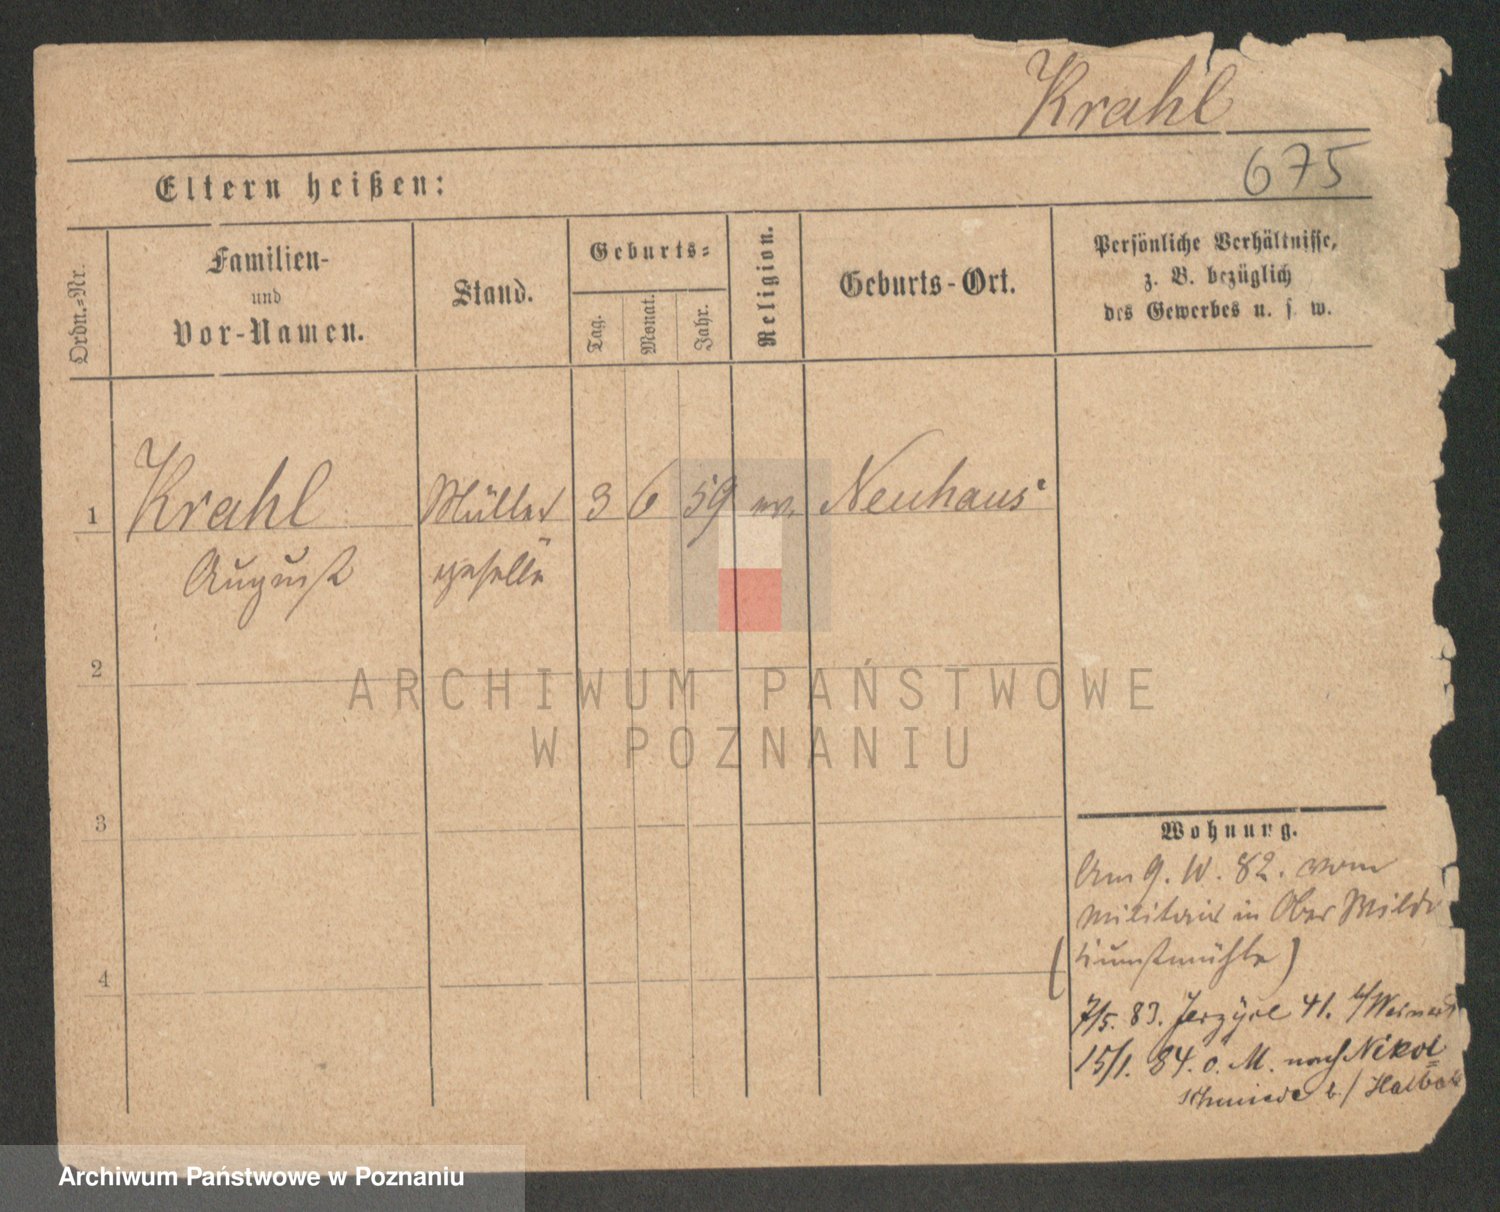 Krahl
675
Eltern heißen:
Ordn.-Nr.
Familien-
und
Vor-Namen.
Stand.
Geburts-
Tag.
Monat.
Jahr.
Religion.
Geburts-Ort.
Persönliche Verhältnisse,
z. B. bezüglich
des Gewerbes u. s. w.
1 Krahl Müller 3 6 59 ev. Neuhaus
August geselle
2
ARCHIWUM PAŃSTWOWE
W POZNANIU
3
4
Wohnung.
Am 9. 10. 82. vom
Militair in Ober Wilda
(Kunstmühle)
7/5. 83. 41.
15/1. 84. o. M. nach
schmiede b/
Archiwum Państwowe w Poznaniu